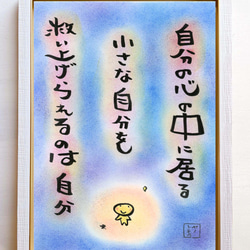 自分の心の中に居る
小さな自分を
救い上げられるのは自分